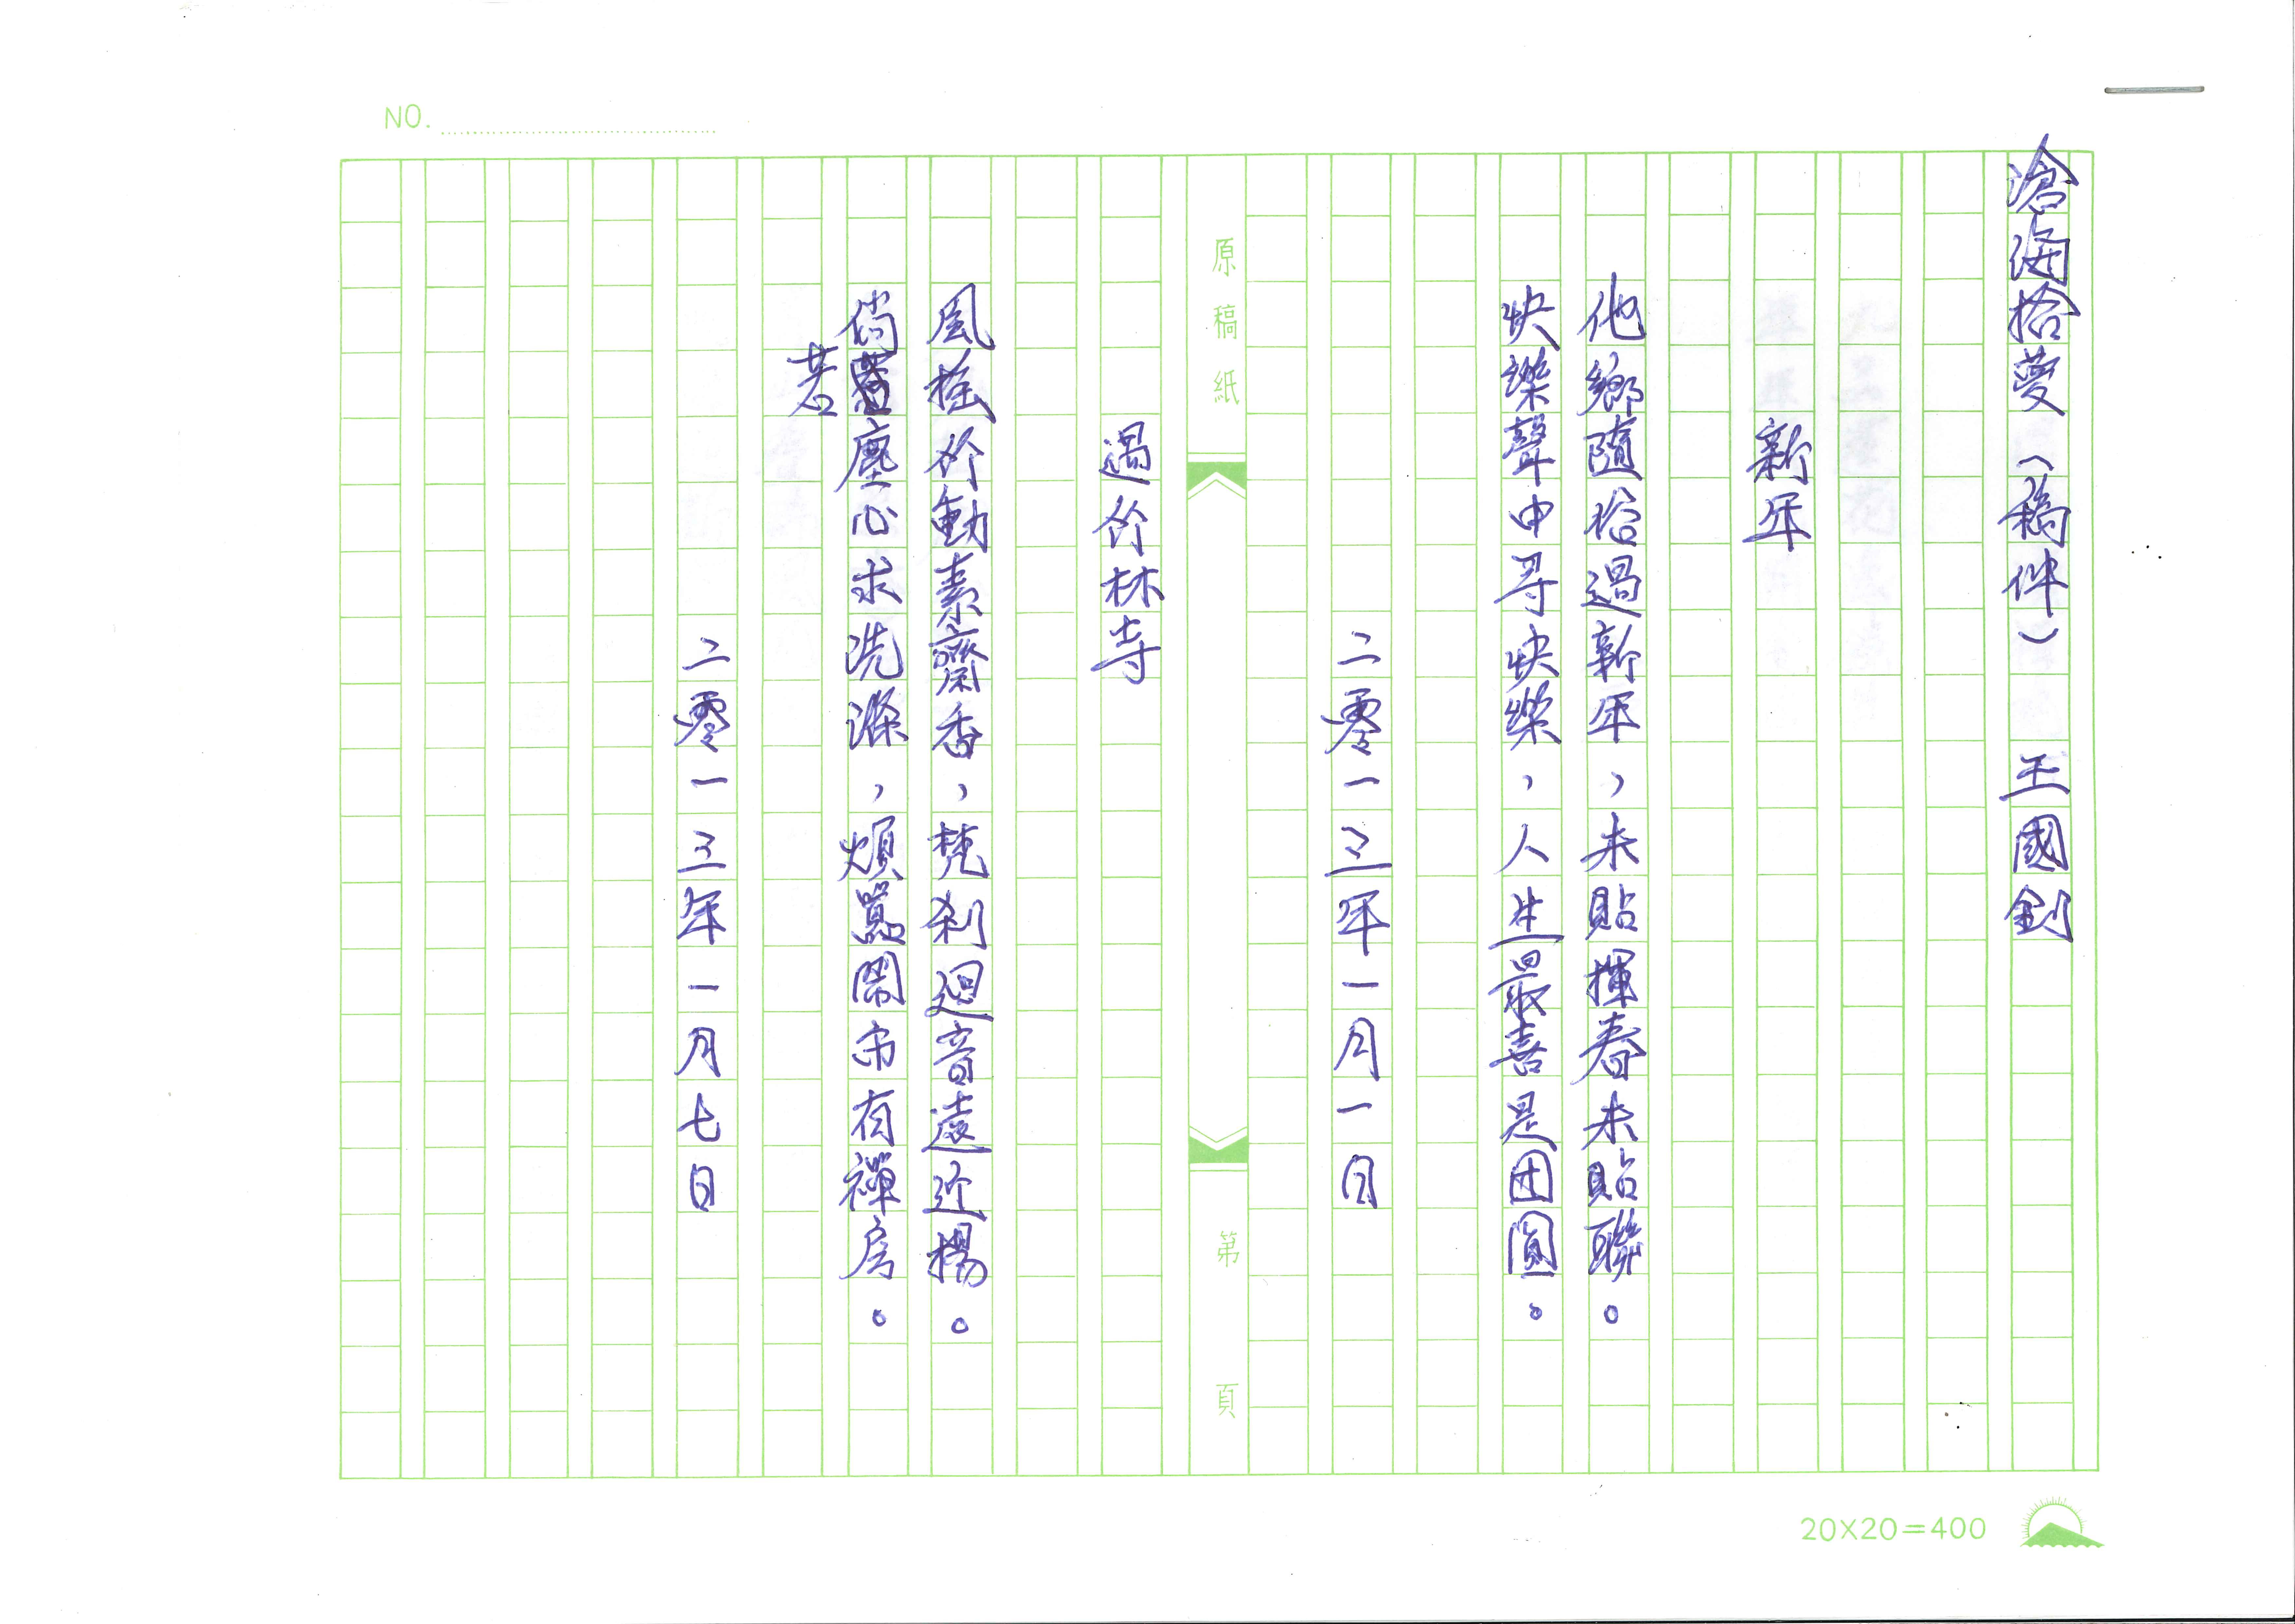 NO.
滄海拾夢（稿件） 王國釗
新年
他鄉隨俗過新年，未貼揮春未貼聯。
快樂聲中尋快樂，人生最喜是团圓。
二零一三年一月一日
原稿紙
第 頁
過竹林寺
風搖竹動素齋香，梵剎迴音遠近揚。
倘若塵心求洗滌，煩囂鬧市有禪房。
二零一三年一月七日
20X20=400